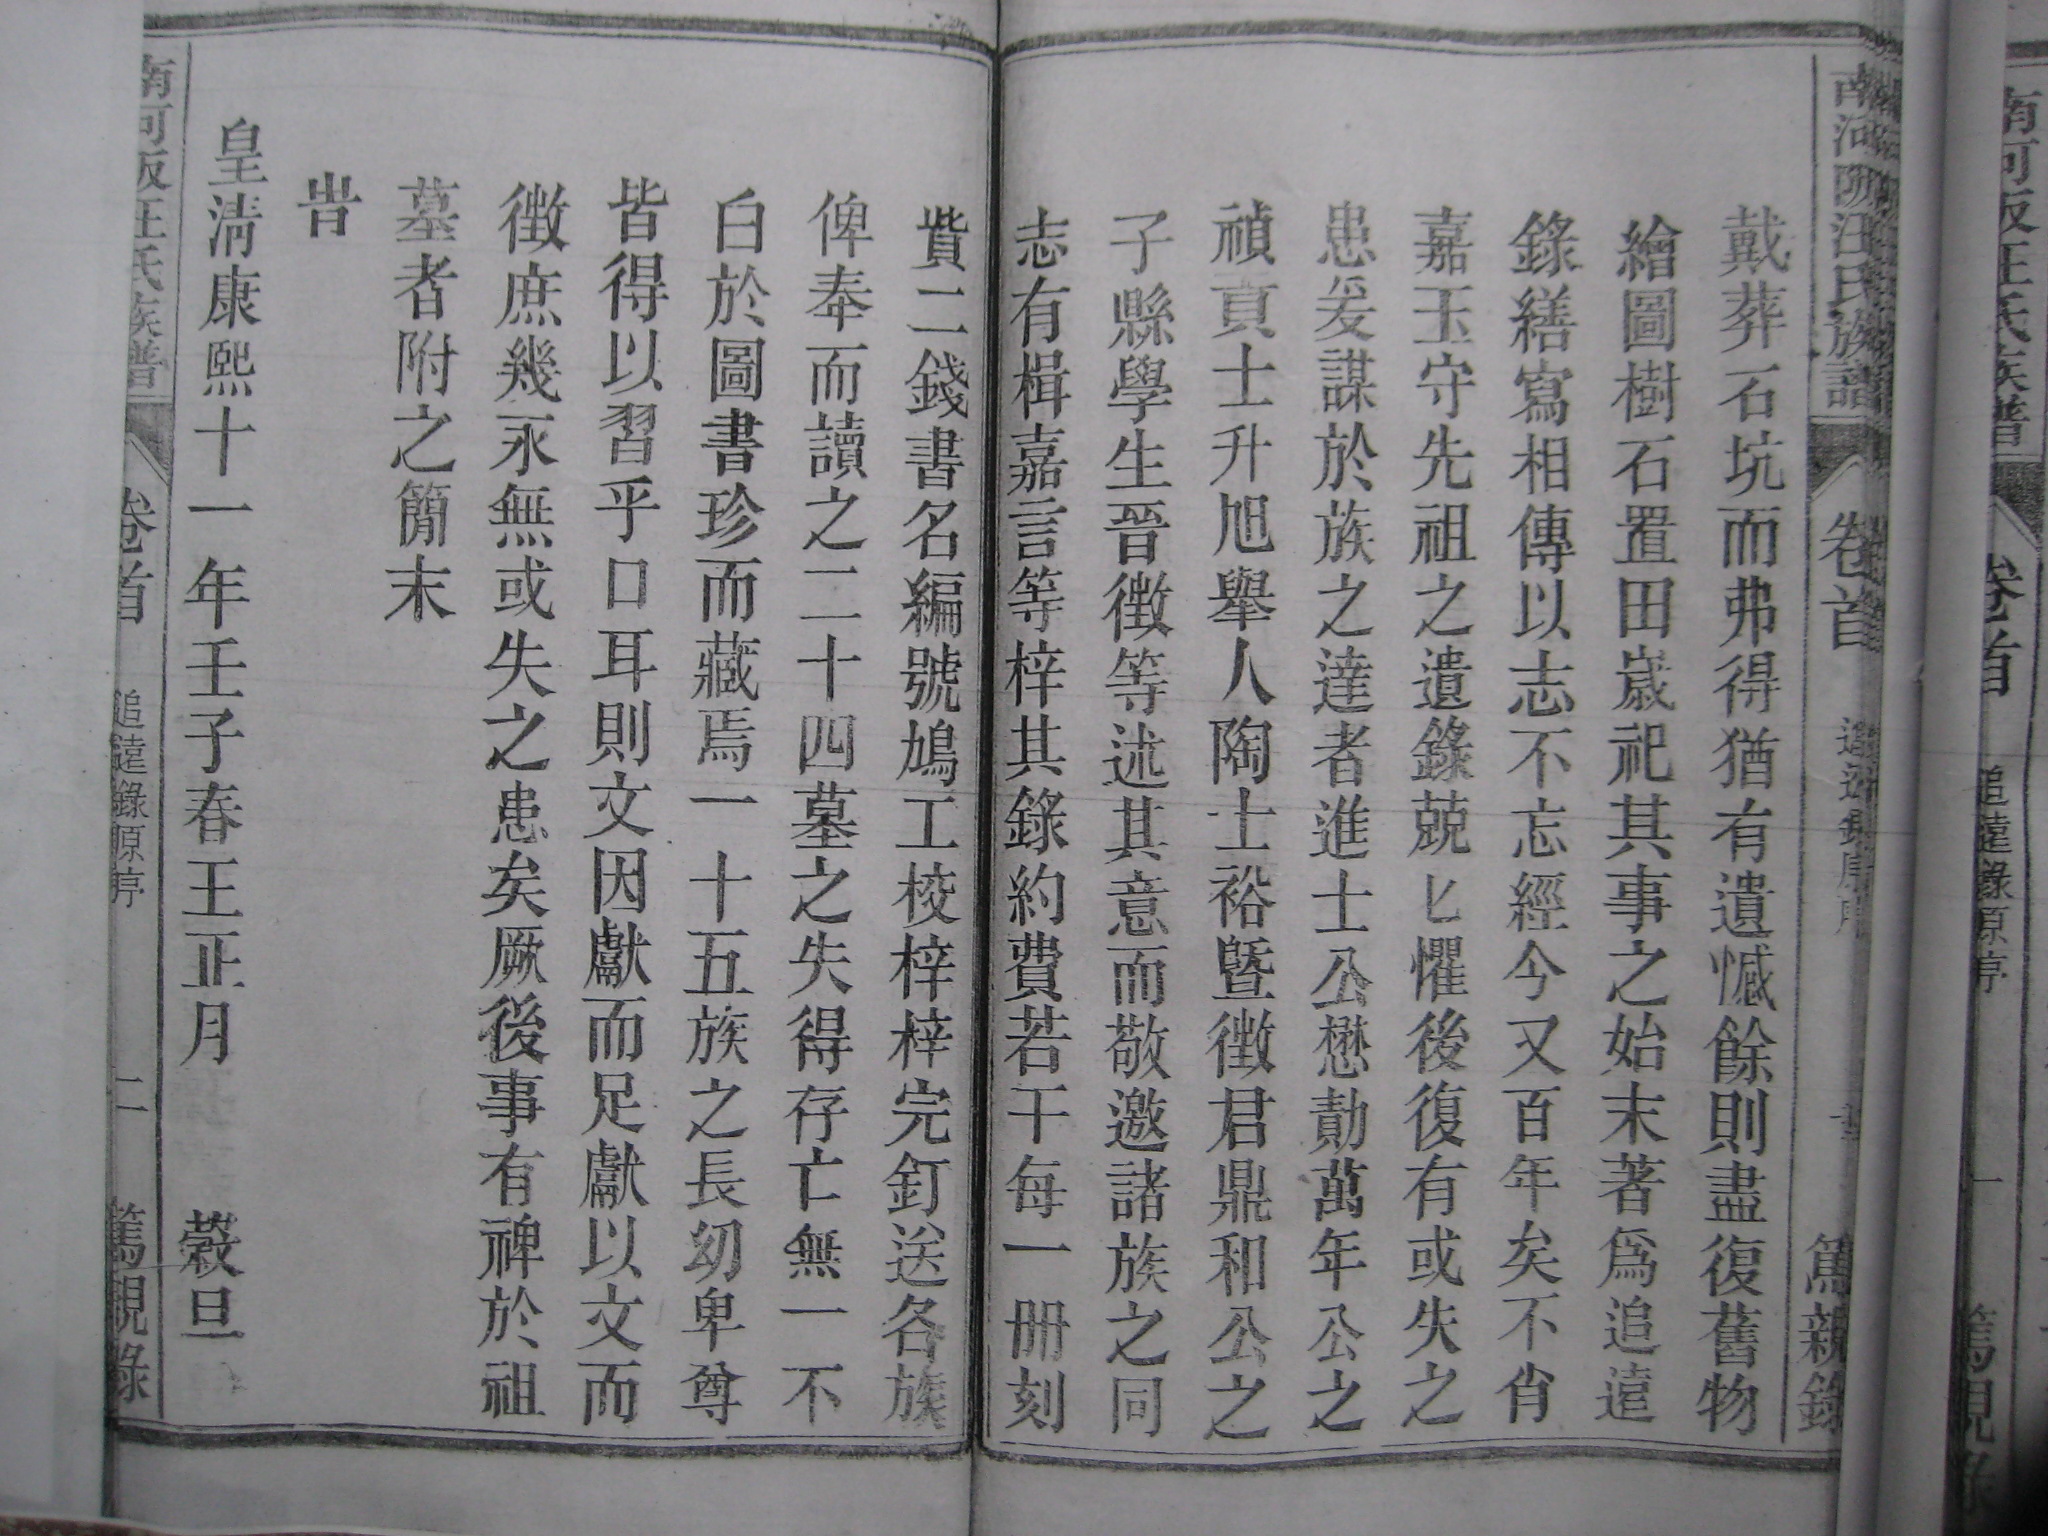 南河阪汪氏族譜 卷首 一 篤親錄
戴葬石坑而弗得猶有遺憾餘則盡復舊物
繪圖樹石置田嵗祀其事之始末著爲追遠
錄繕寫相傳以志不忘經今又百年矣不肖
嘉玉守先祖之遺錄兢匕懼後復有或失之
患爰謀於族之達者進士公懋勣萬年公之
禎貢士升旭舉人陶士裕曁徵君鼎和公之
子縣學生晉徵等述其意而敬邀諸族之同
志有楫嘉言等梓其錄約費若干每一冊刻
貲二錢書名編號鳩工校梓梓完釘送各族
俾奉而讀之二十四墓之失得存亡無一不
白於圖書珍而藏焉一十五族之長幼卑尊
皆得以習乎口耳則文因獻而足獻以文而
徵庶幾永無或失之患矣厥後事有禆於祖
墓者附之簡末
旹
皇淸康熙十一年壬子春王正月 穀旦
南河阪汪氏族譜 卷首 追遠錄原序 二 篤親錄
南河阪汪氏族譜 卷首 追遠錄原序 一 篤親錄